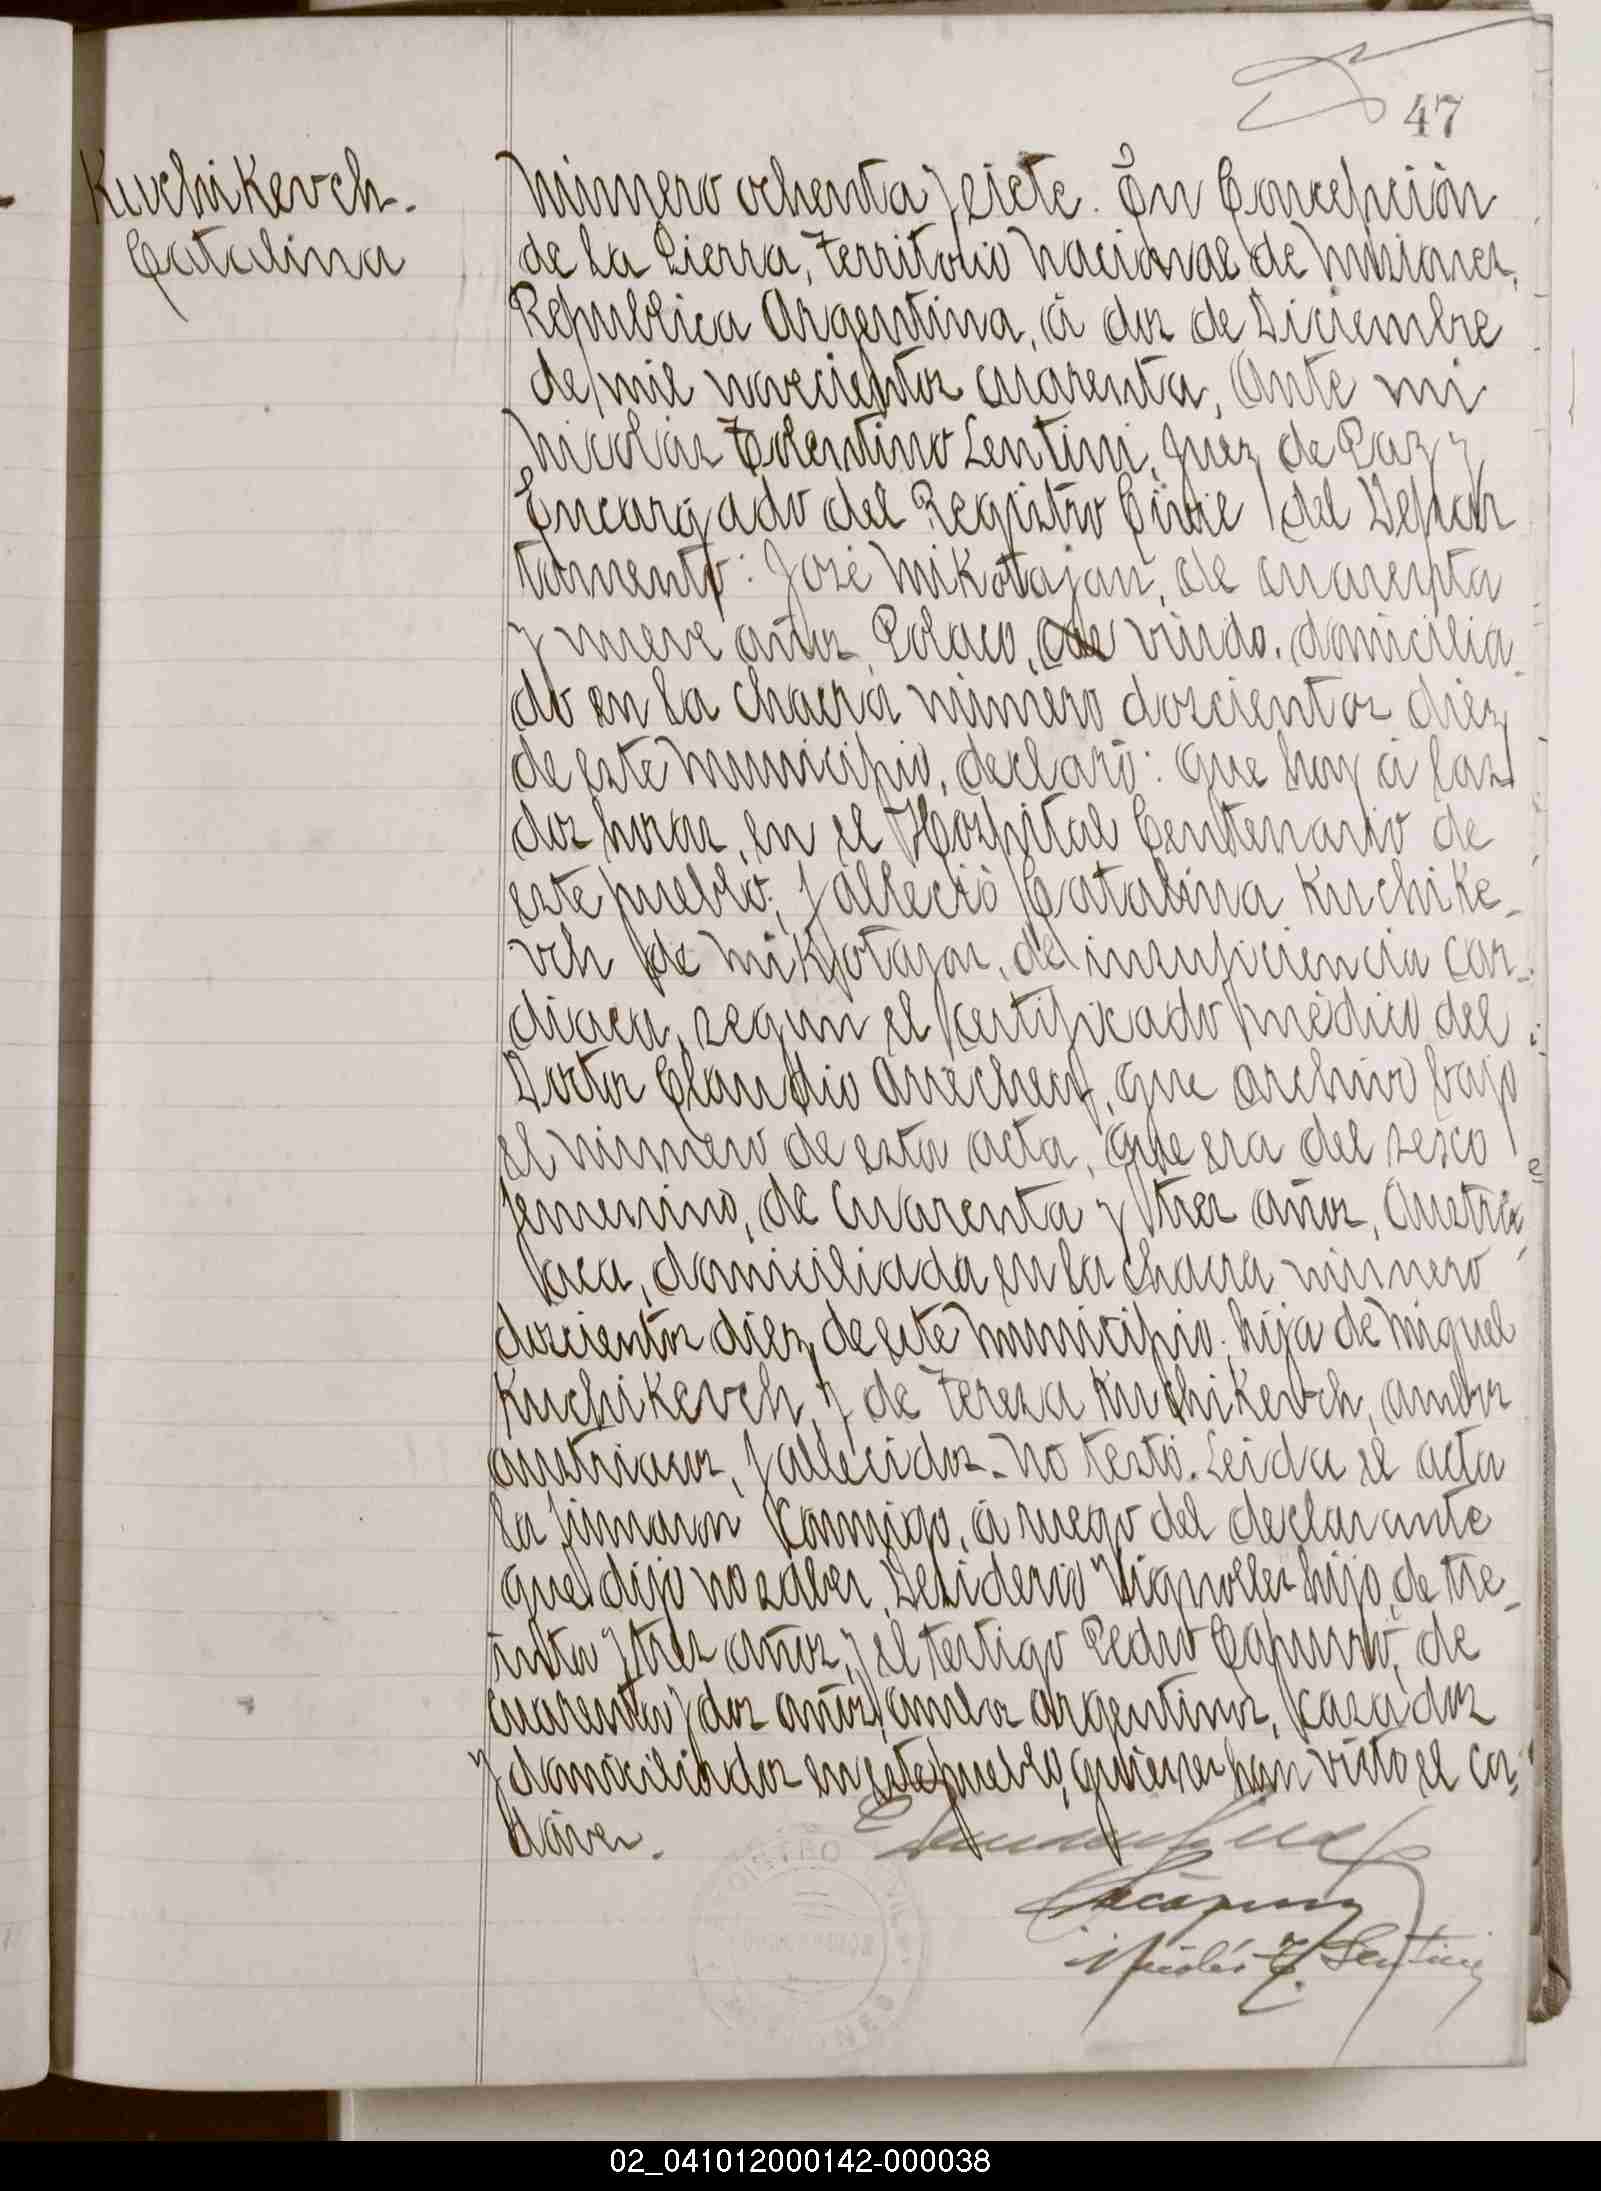 47
Kuchikevch.
Catalina
Número ochenta y siete. En Concepción
de la Sierra, Territorio Nacional de Misiones,
República Argentina, á dos de Diciembre
de mil novecientos cuarenta, Ante mi
Nicolás Tolentino Lentini, Juez de Paz y
Encargado del Registro Civil del Depar
tamento: José Mikotajar, de cuarenta
y nueve años, Polaco, de viudo, domicilia-
do en la chacra número doscientos diez
de este Municipio, declaró: Que hoy á las
dos horas, en el Hospital Centenario de
este pueblo; falleció Catalina Kuchike-
vch de Mikotajar, de insuficiencia car-
diaca, segun el certificado médico del
Doctor Claudio Arrechea, que archivo bajo
el número de esta acta, Que era del sexo
femenino, de cuarenta y tres años, Austria-
aca, domiciliada en la chacra número
doscientos diez, de este Municipio; hija de Miguel
Kuchikevch, y de Teresa Kuchikevch, ambos
austriacos, fallecidos. No testó. Leida el acta
la firmaron conmigo, á ruego del declarante
que dijo no saber, Desiderio Vignolles hijo, de tre-
inta y tres años, y el testigo Pedro Capurro, de
cuarenta y dos años, ambos argentinos, casados
y domiciliados en este pueblo, quienes han visto el ca-
dáver.
Nicolás T. Lentini
02_041012000142-000038